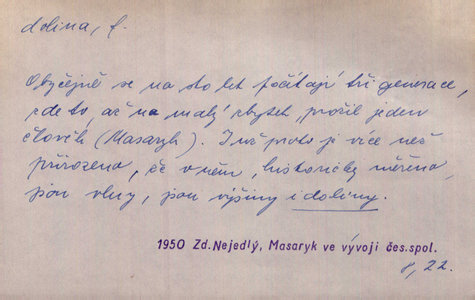 dolina, f.
Obyčejně se na sto let počítají tři generace,
zde to, až na malý zbytek, prožil jeden
člověk (Masaryk). Již proto je více než
přirozeno, že v něm, historicky měřeno,
jsou vlny, jsou výšiny i doliny.
1950 Zd. Nejedlý, Masaryk ve vývoji čes.spol.
8, 22.